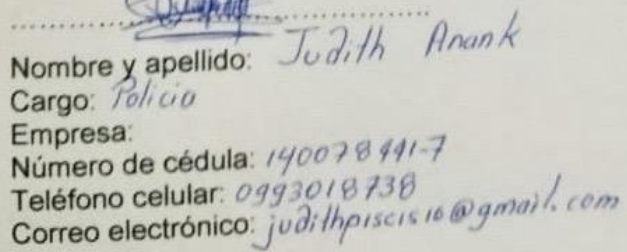 Nombre y apellido: Judith Anank
Cargo: Policia
Empresa:
Número de cédula: 140078491-7
Teléfono celular: 0993018738
Correo electrónico: judithpiscis10@gmail.com